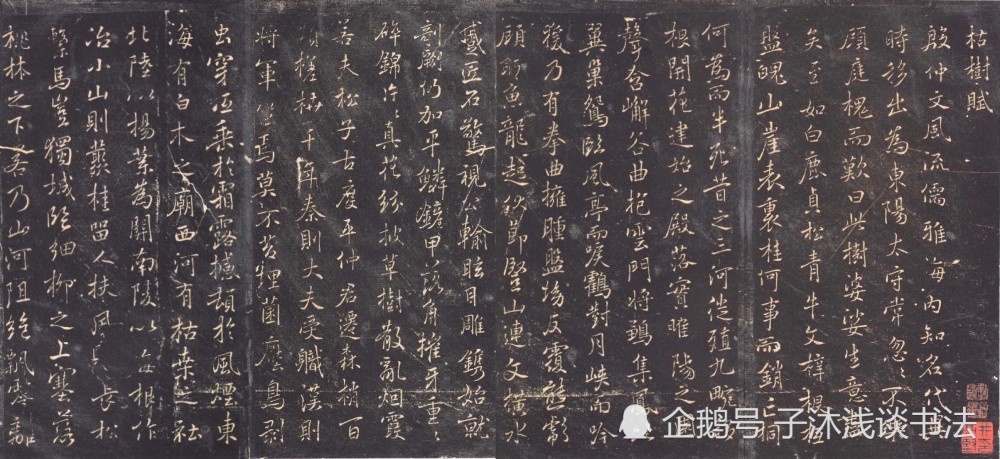 枯樹賦
殷仲文風流儒雅海內知名代異
時移出為東陽太守常忽〻不樂
顧庭槐而歎曰此樹婆娑生意盡
矣至如白鹿貞松青牛文梓根柢
盤魄山崖表裏桂何事而銷亡桐
何為而半死昔之三河徙殖九畹移
根開花建始之殿落實睢陽之園
聲含嶰谷曲抱雲門將鶵集鳳比
翼巢鴛臨風亭而唳鶴對月峽而吟
猨乃有拳曲擁腫盤坳反覆熊彪
顧盼魚龍起伏節竪山連文橫水
蹙匠石驚視公輸眩目雕鐫始就
剞劂仍加平鱗鏟甲落角摧牙重〻
碎錦片〻真花紛披草樹散亂烟霞
若夫松子古度平仲君遷森梢百
頃槎枿千年秦則大夫受職漢則
將軍坐焉莫不苔埋菌壓鳥剥
虫穿低垂於霜露撼頓於風煙東
海有白木之廟西河有枯桑之社
北陸以楊葉為關南陵以梅根作
冶小山則叢桂留人扶風則長松
繫馬豈獨城臨細柳之上塞落
桃林之下若乃山河阻絕飄零離
企鹅号 子沐浅谈书法